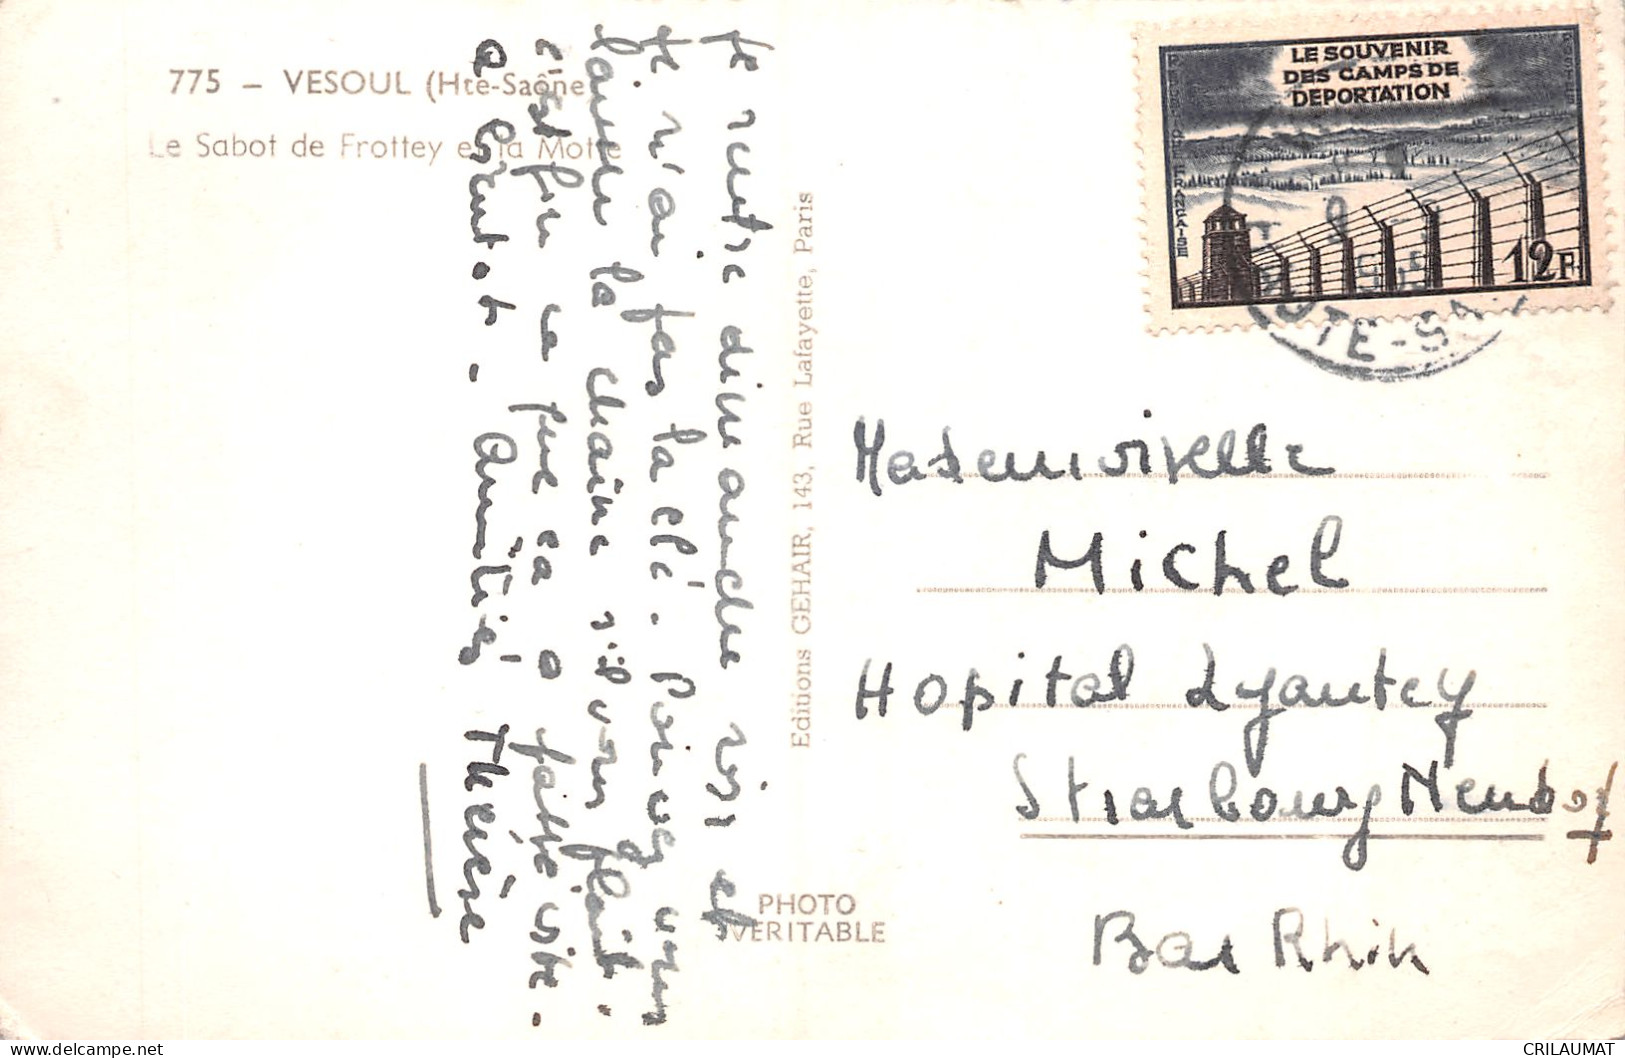 775 – VESOUL (Hte-Saône)
Le Sabot de Frottey et la Motte
Je rentre dimanche soir et
je n'ai pas la clé. Pouvez vous
laisser la chaîne s'il vous plaît.
c'est fou ce que ça a passé vite.
à bientôt. Amitiés Thérèse
Editions GEHAIR, 143, Rue Lafayette, Paris
PHOTO
VERITABLE
REPUBLIQUE FRANÇAISE
LE SOUVENIR
DES CAMPS DE
DEPORTATION
12F
HTE-SA
Mademoiselle
Michel
Hopital Lyautey
Strasbourg Neudorf
Bas Rhin
CRILAUMAT